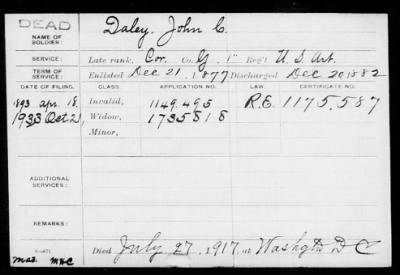 DEAD
NAME OF SOLDIER: Daley, John C.
SERVICE: Late rank, Cor. Co. G, 1 Reg't U.S. Art.
TERM OF SERVICE: Enlisted Dec 21, 1877 Discharged Dec 20 1882
DATE OF FILING. CLASS. APPLICATION NO. LAW. CERTIFICATE NO.
1893 Apr. 18, Invalid, 1149.495 R.E. 1175.587
1933 Oct 21, Widow, 1735818
Minor,
ADDITIONAL SERVICES:
REMARKS:
Died July 27, 1917, at Washgtn D C